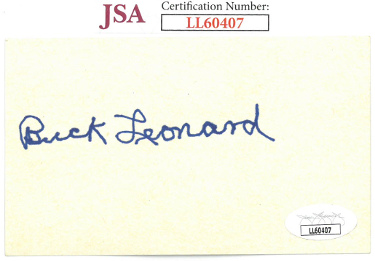 JSA
Certification Number:
LL60407
Buck Leonard
LL60407